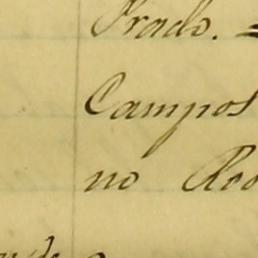 Prado. =
Campos
no